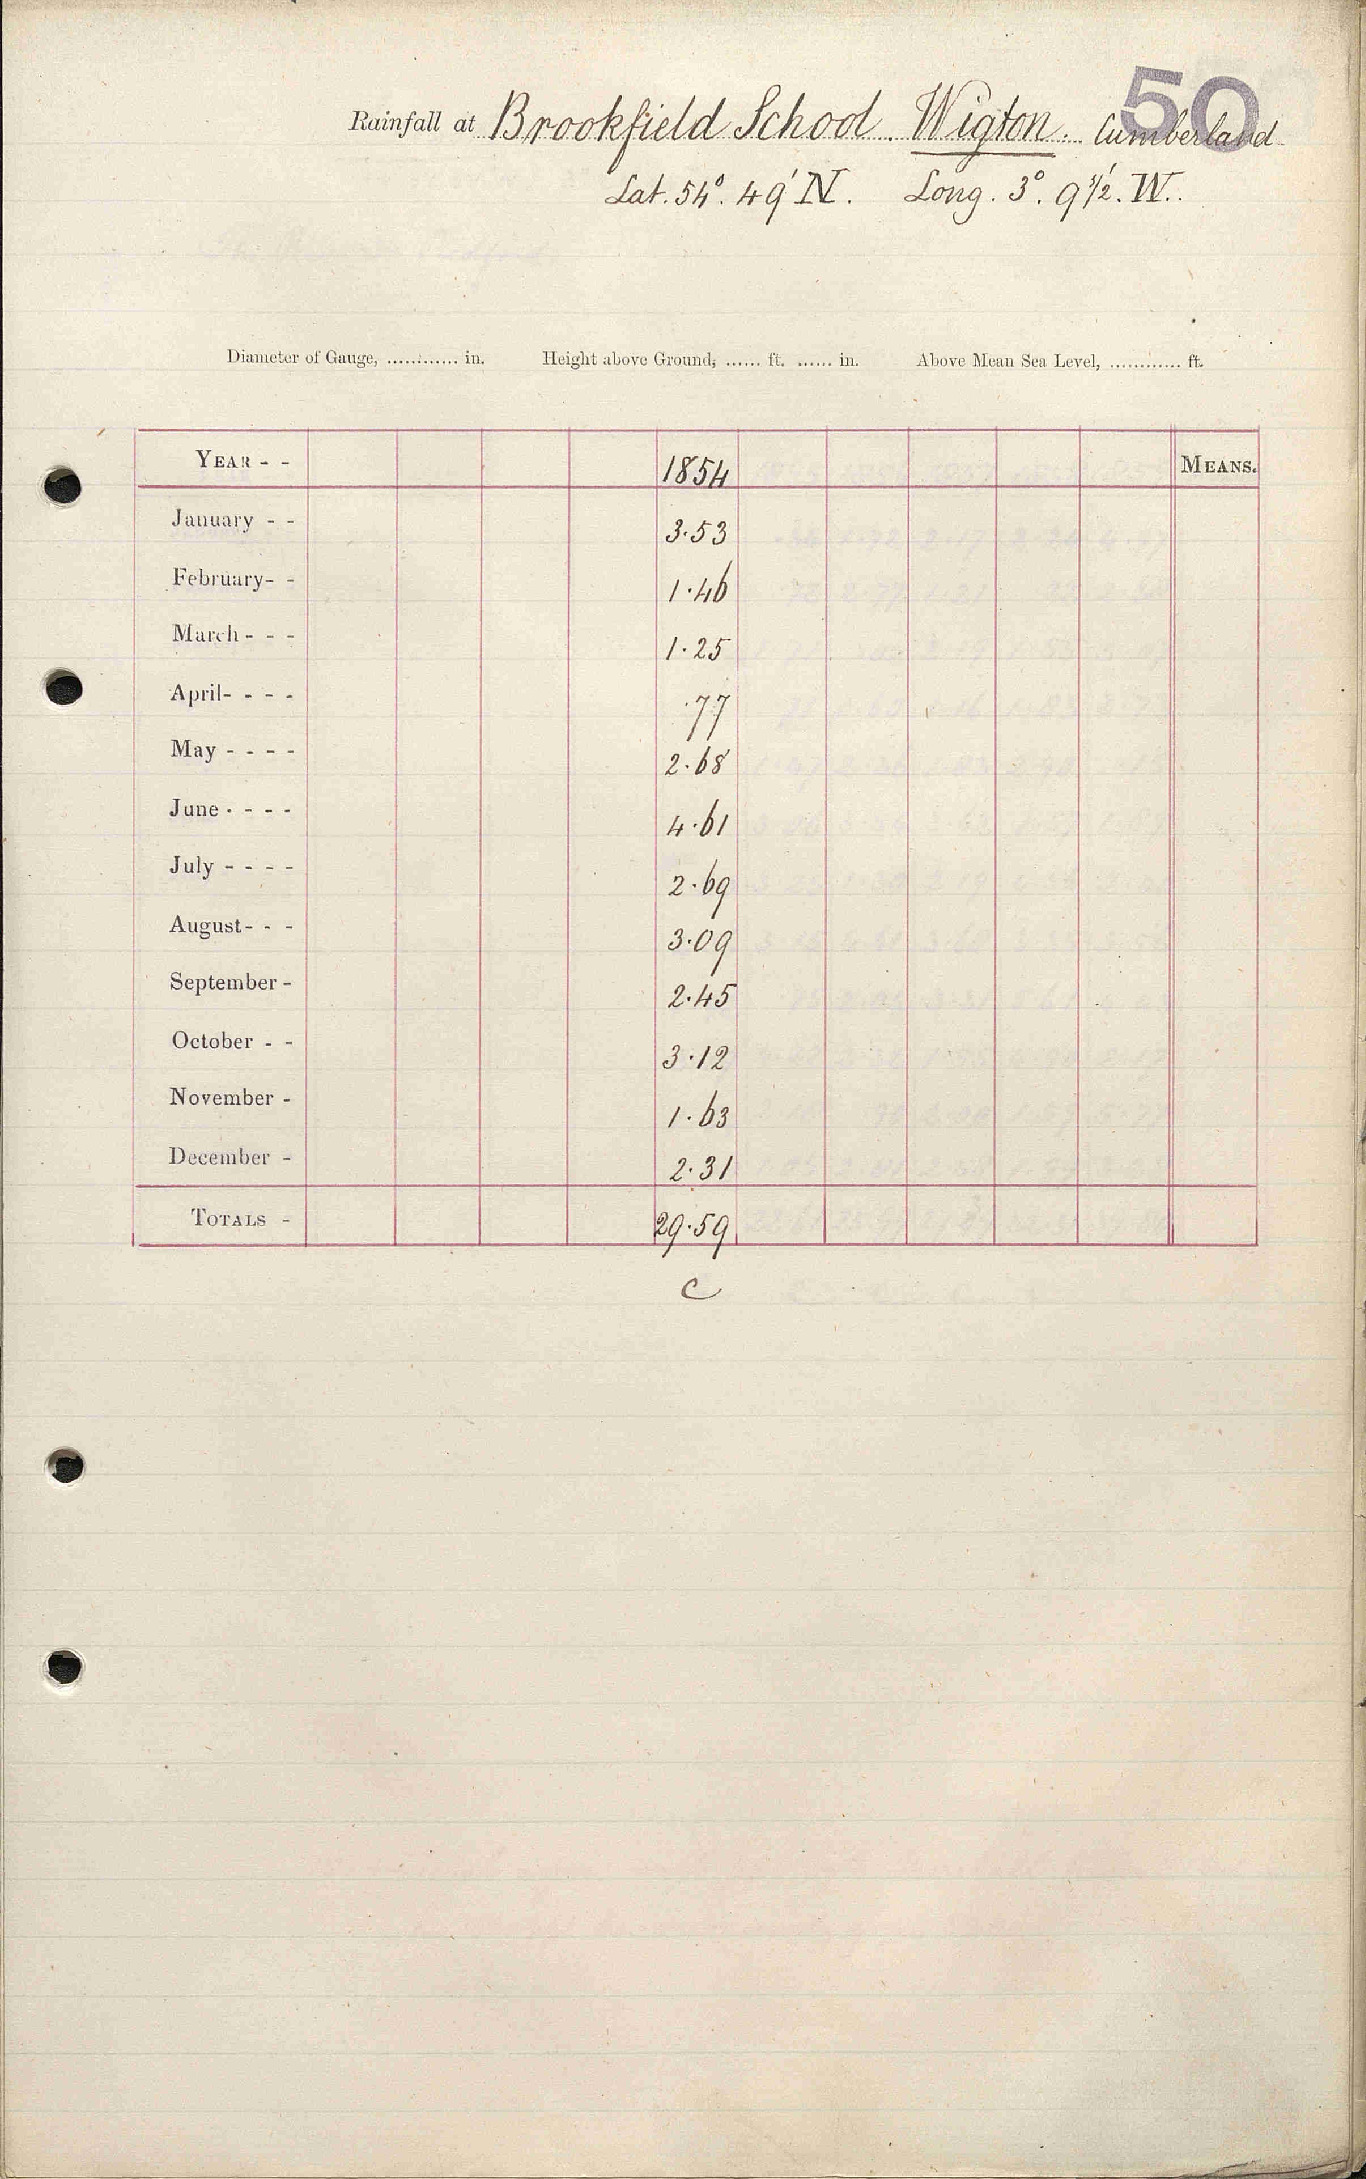 50
Rainfall at Brookfield School. Wigton. Cumberland
Lat. 54°. 49' N. Long. 3°. 9 1/2'. W.
Diameter of Gauge, ............ in. Height above Ground, ...... ft. ...... in. Above Mean Sea Level, ............ ft.
YEAR - - 1854 MEANS.
January - - 3.53
February- - 1.46
March - - - 1.25
April- - - - .77
May - - - - 2.68
June - - - - 4.61
July - - - - 2.69
August- - - 3.09
September - 2.45
October - - 3.12
November - 1.63
December - 2.31
TOTALS - 29.59
C